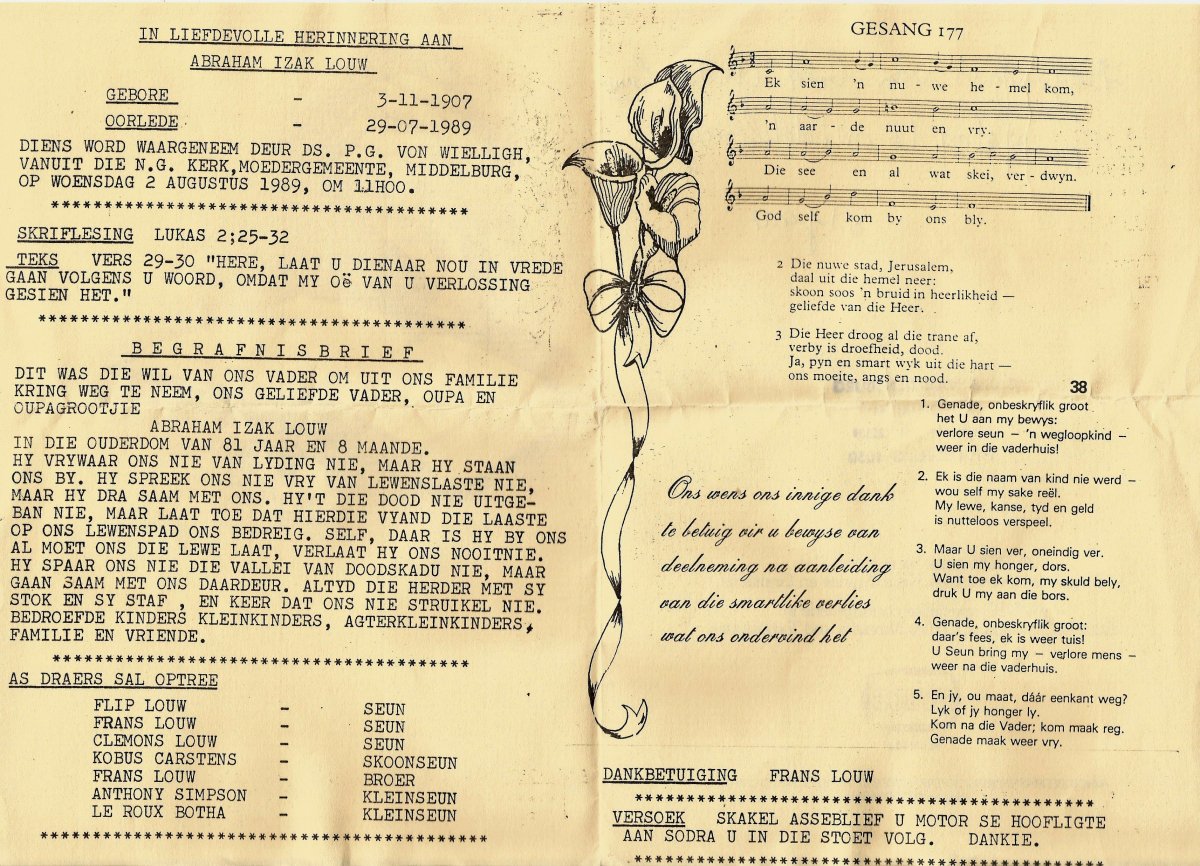 IN LIEFDEVOLLE HERINNERING AAN
ABRAHAM IZAK LOUW
GEBORE - 3-11-1907
OORLEDE - 29-07-1989
DIENS WORD WAARGENEEM DEUR DS. P.G. VON WIELLIGH,
VANUIT DIE N.G. KERK,MOEDERGEMEENTE, MIDDELBURG,
OP WOENSDAG 2 AUGUSTUS 1989, OM 11HOO.
****************************************
SKRIFLESING LUKAS 2;25-32
TEKS VERS 29-30 "HERE, LAAT U DIENAAR NOU IN VREDE
GAAN VOLGENS U WOORD, OMDAT MY OË VAN U VERLOSSING
GESIEN HET."
****************************************
BEGRAFNISBRIEF
DIT WAS DIE WIL VAN ONS VADER OM UIT ONS FAMILIE
KRING WEG TE NEEM, ONS GELIEFDE VADER, OUPA EN
OUPAGROOTJIE
ABRAHAM IZAK LOUW
IN DIE OUDERDOM VAN 81 JAAR EN 8 MAANDE.
HY VRYWAAR ONS NIE VAN LYDING NIE, MAAR HY STAAN
ONS BY. HY SPREEK ONS NIE VRY VAN LEWENSLASTE NIE,
MAAR HY DRA SAAM MET ONS. HY'T DIE DOOD NIE UITGE-
BAN NIE, MAAR LAAT TOE DAT HIERDIE VYAND DIE LAASTE
OP ONS LEWENSPAD ONS BEDREIG. SELF, DAAR IS HY BY ONS
AL MOET ONS DIE LEWE LAAT, VERLAAT HY ONS NOOITNIE.
HY SPAAR ONS NIE DIE VALLEI VAN DOODSKADU NIE, MAAR
GAAN SAAM MET ONS DAARDEUR. ALTYD DIE HERDER MET SY
STOK EN SY STAF , EN KEER DAT ONS NIE STRUIKEL NIE.
BEDROEFDE KINDERS KLEINKINDERS, AGTERKLEINKINDERS,
FAMILIE EN VRIENDE.
****************************************
AS DRAERS SAL OPTREE
FLIP LOUW - SEUN
FRANS LOUW - SEUN
CLEMONS LOUW - SEUN
KOBUS CARSTENS - SKOONSEUN
FRANS LOUW - BROER
ANTHONY SIMPSON - KLEINSEUN
LE ROUX BOTHA - KLEINSEUN
*******************************************
GESANG 177
Ek sien 'n nu - we he - mel kom,
'n aar - de nuut en vry.
Die see en al wat skei, ver - dwyn.
God self kom by ons bly.
2 Die nuwe stad, Jerusalem,
daal uit die hemel neer:
skoon soos 'n bruid in heerlikheid —
geliefde van die Heer.
3 Die Heer droog al die trane af,
verby is droefheid, dood.
Ja, pyn en smart wyk uit die hart —
ons moeite, angs en nood.
38
1. Genade, onbeskryflik groot
het U aan my bewys:
verlore seun – 'n wegloopkind –
weer in die vaderhuis!
2. Ek is die naam van kind nie werd –
wou self my sake reël.
My lewe, kanse, tyd en geld
is nutteloos verspeel.
3. Maar U sien ver, oneindig ver.
U sien my honger, dors.
Want toe ek kom, my skuld bely,
druk U my aan die bors.
4. Genade, onbeskryflik groot:
daar's fees, ek is weer tuis!
U Seun bring my – verlore mens –
weer na die vaderhuis.
5. En jy, ou maat, dáár eenkant weg?
Lyk of jy honger ly.
Kom na die Vader; kom maak reg.
Genade maak weer vry.
Ons wens ons innige dank
te betuig vir u bewyse van
deelneming na aanleiding
van die smartlike verlies
wat ons ondervind het
DANKBETUIGING FRANS LOUW
********************************************
VERSOEK SKAKEL ASSEBLIEF U MOTOR SE HOOFLIGTE
AAN SODRA U IN DIE STOET VOLG. DANKIE.
********************************************